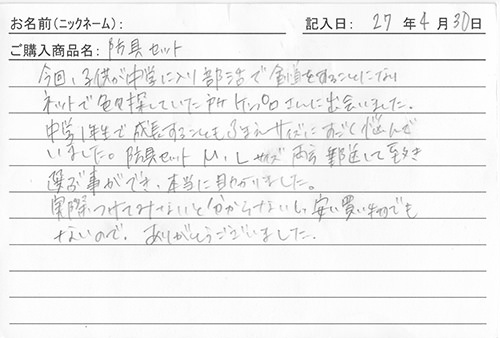 お名前(ニックネーム):
記入日: 27 年 4 月 30 日
ご購入商品名: 防具セット
今回、子供が中学に入り部活で剣道をすることになり
ネットで色々探していた所ケンプロさんに出会いました。
中学1年生で成長することも ふまえサイズにすごく悩んで
いました。防具セット M、L サイズ 両方 郵送して頂き
選ぶ事ができ、本当に助かりました。
実際、つけてみないと分からないし、安い買い物でも
ないので、ありがとうございました。